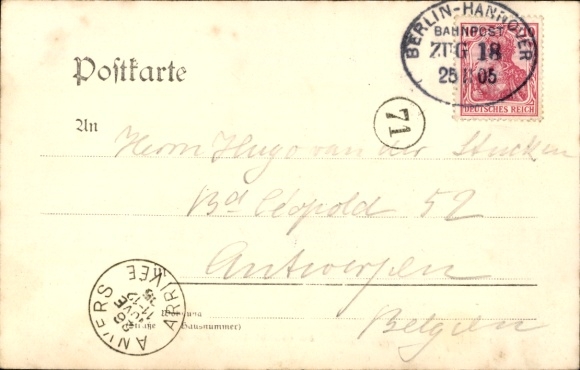 BERLIN-HANNOVER
BAHNPOST
ZUG 18
25 05
DEUTSCHES REICH
Postkarte
71
An
Herrn Hugo van der Stucken
Bd Léopold 52
Antwerpen
Belgien
Wohnung
(Straße und Hausnummer)
ANVERS
ARRIVÉE